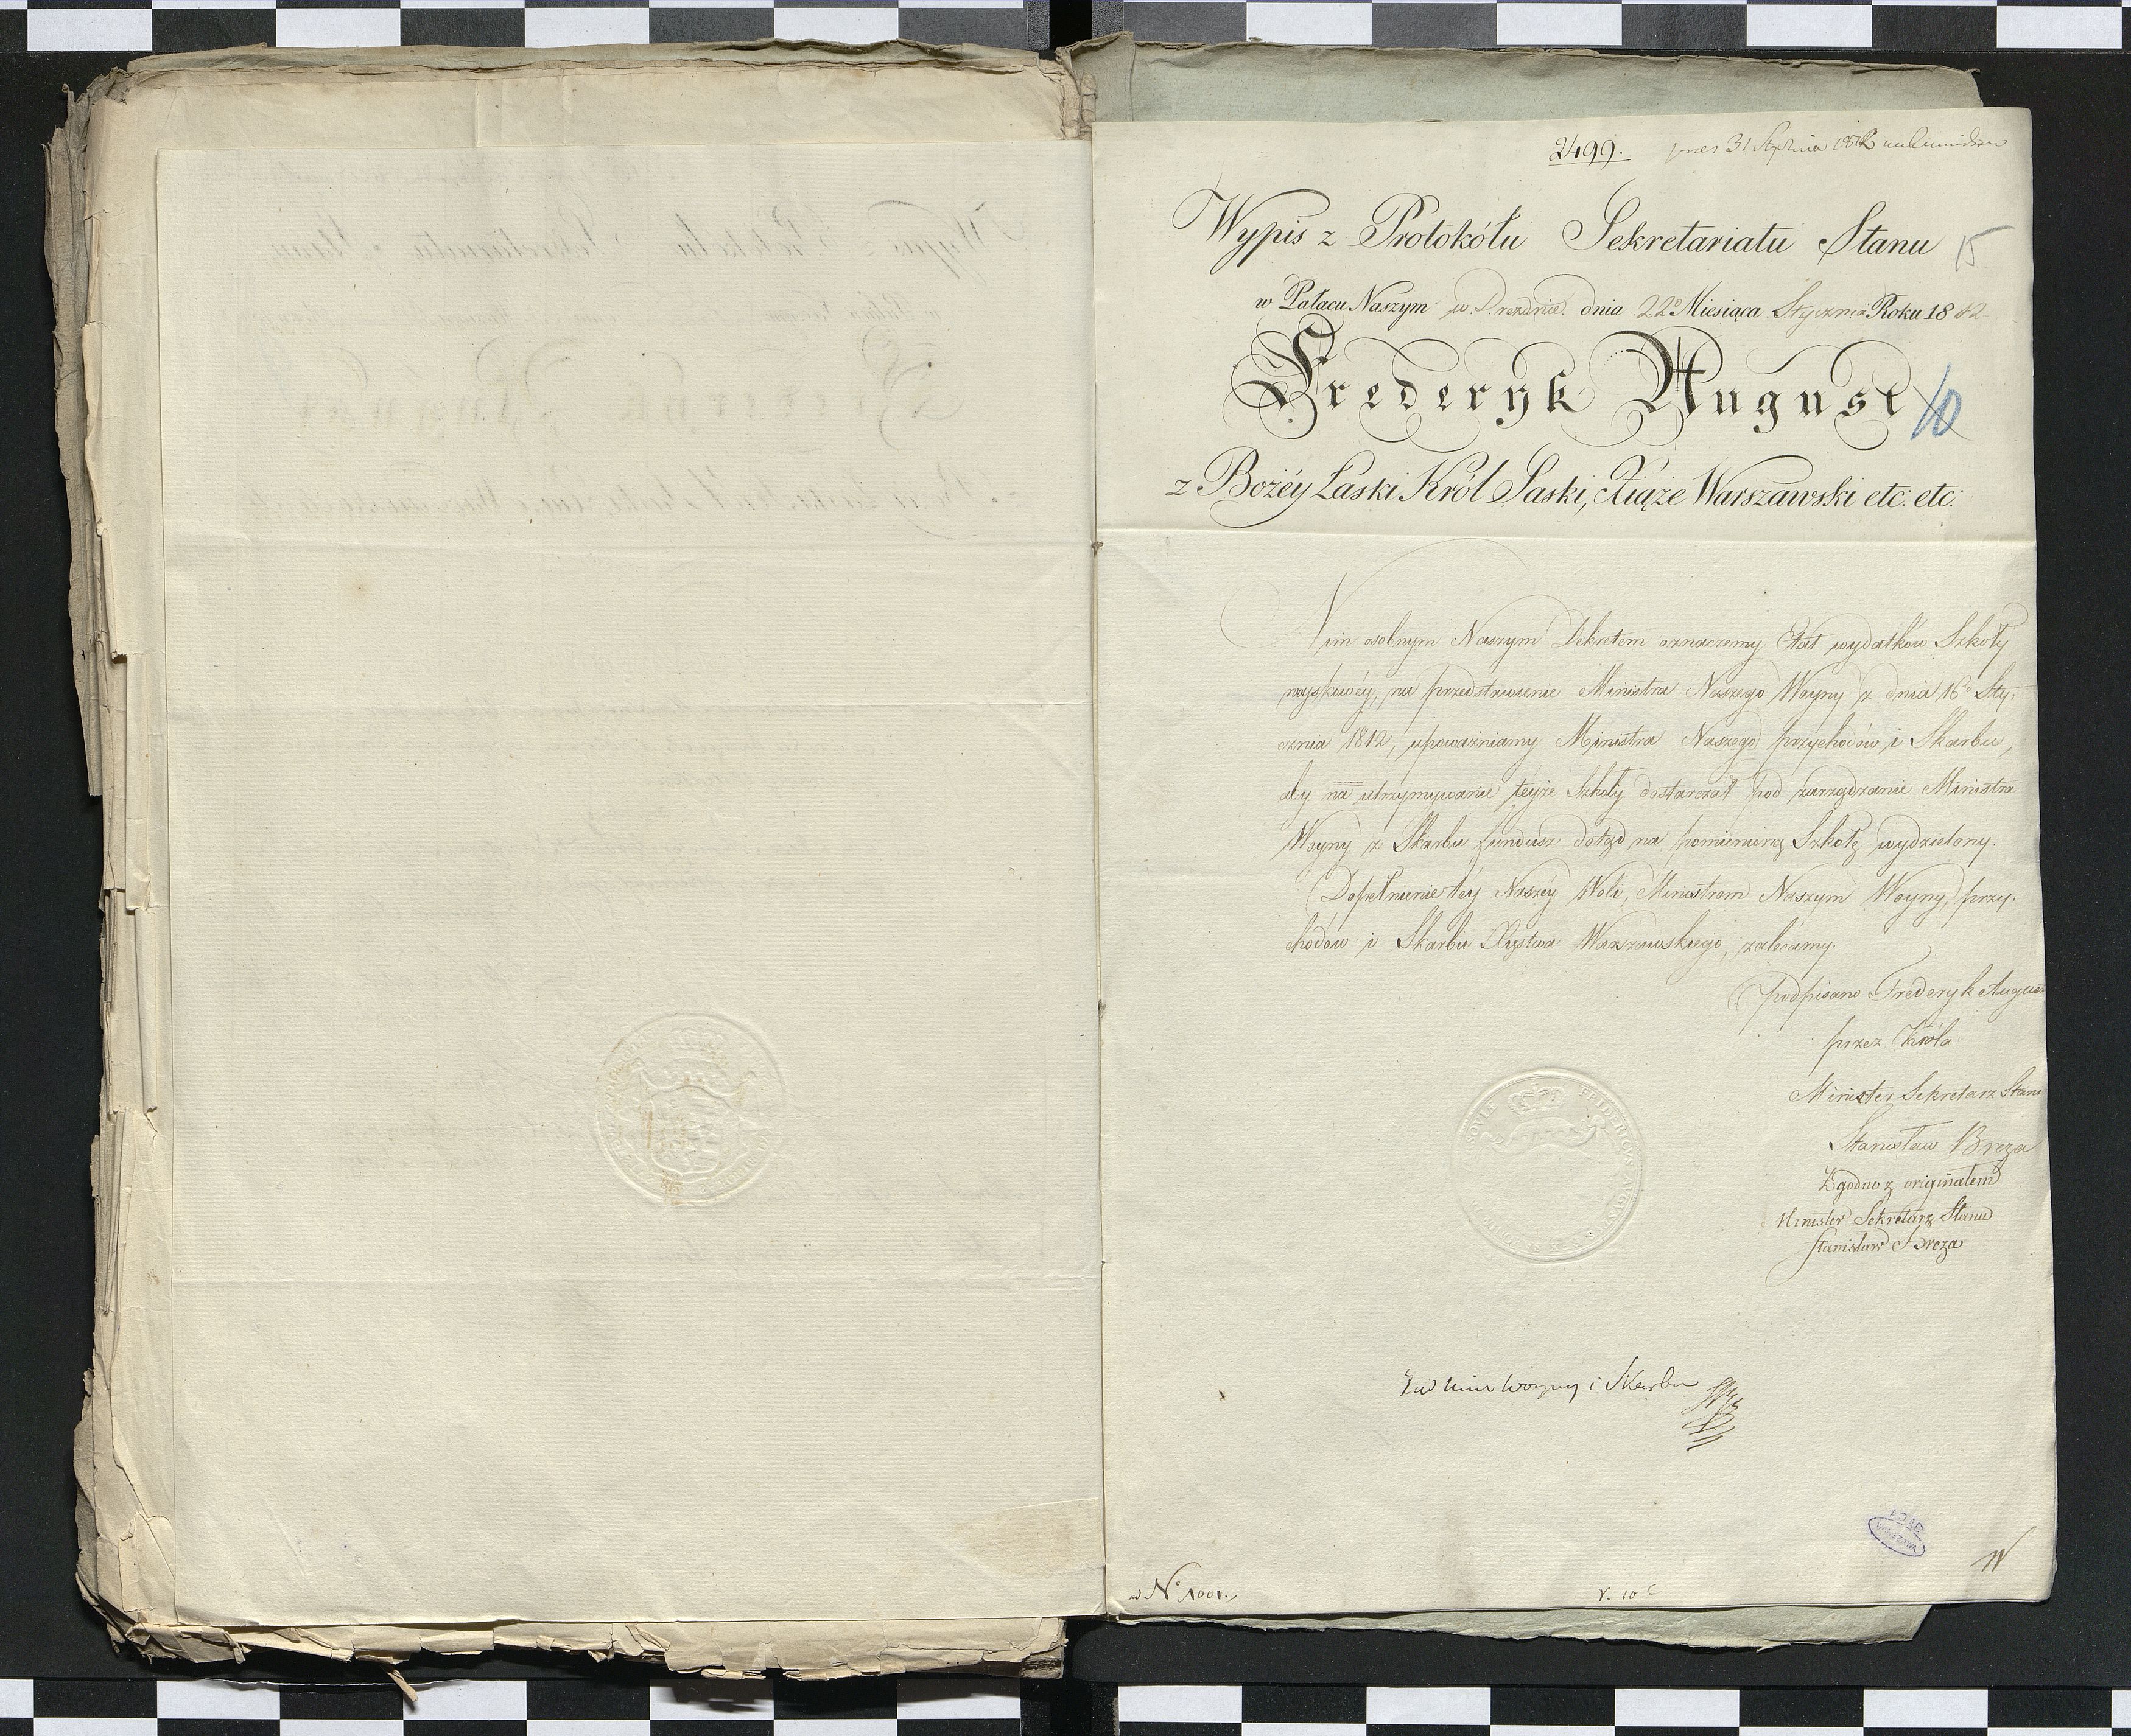 2499. 31 Stycznia 1812
Wypis z Protokółu Sekretariatu Stanu 15
w Pałacu Naszym w Dreznie dnia 22º Miesiąca Stycznia Roku 1812
Fryderyk August 10
z Bożéy Łaski Król Saski, Xiąże Warszawski etc. etc.
Nim osobnym Naszym Dekretem oznaczemy Etat wydatków Szkoły
woyskowéy, na przedstawienie Ministra Naszego Woyny z dnia 16º Sty-
cznia 1812, upoważniamy Ministra Naszego przychodów i Skarbu,
aby na utrzymywanie teyże Szkoły dostarczał pod zarządzanie Ministra
Woyny z Skarbu fundusz dotąd na pomienioną Szkołę wydzielony.
Dopełnienie téy Naszéy Woli, Ministrom Naszym Woyny, przy-
chodów i Skarbu Xięstwa Warszawskiego, zalecamy.
podpisano Frederyk August
przez Króla
Minister Sekretarz Stanu
Stanisław Breza
Zgodno z originałem
Minister Sekretarz Stanu
Stanisław Breza
FRIDERICVS AVGVSTVS
Woyny i Skarbu
AGAD
WARSZAWA
Nº 1001.